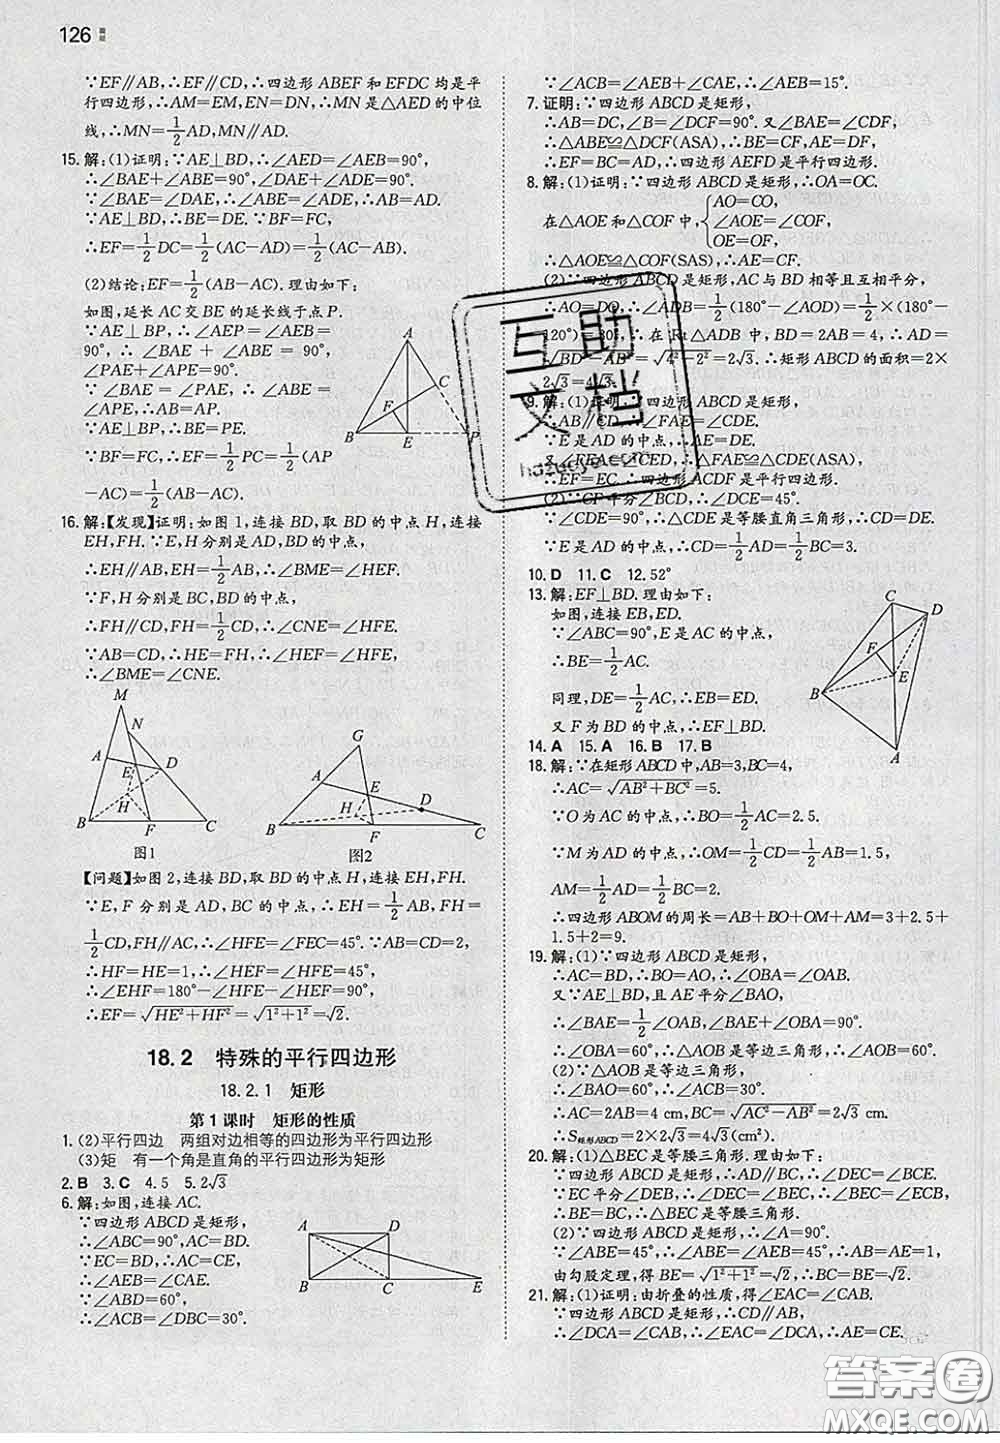 126
∵EF∥AB,∴EF∥CD,∴四边形ABEF和EFDC均是平
行四边形,∴AM=EM,EN=DN,∴MN是△AED的中位
线,∴MN=1/2AD,MN∥AD.
15. 解:(1)证明:∵AE⊥BD,∴∠AED=∠AEB=90°,
∴∠BAE+∠ABE=90°,∠DAE+∠ADE=90°.
∵∠BAE=∠DAE,∴∠ABE=∠ADE,∴AB=AD.
∵AE⊥BD,∴BE=DE.∵BF=FC,
∴EF=1/2DC=1/2(AC-AD)=1/2(AC-AB).
(2)结论:EF=1/2(AB-AC).理由如下:
如图,延长AC交BE的延长线于点P.
∵AE⊥BP,∴∠AEP=∠AEB=
90°,∴∠BAE+∠ABE=90°,
∠PAE+∠APE=90°.
∵∠BAE=∠PAE,∴∠ABE=
∠APE,∴AB=AP.
∵AE⊥BP,∴BE=PE.
∵BF=FC,∴EF=1/2PC=1/2(AP
-AC)=1/2(AB-AC).
A
C
F
B
E
P
16. 解:【发现】证明:如图1,连接BD,取BD的中点H,连接
EH,FH.∵E,H分别是AD,BD的中点,
∴EH∥AB,EH=1/2AB,∴∠BME=∠HEF.
∵F,H分别是BC,BD的中点,
∴FH∥CD,FH=1/2CD,∴∠CNE=∠HFE.
∵AB=CD,∴HE=FH,∴∠HEF=∠HFE,
∴∠BME=∠CNE.
M
N
A
E
D
H
B
F
C
图1
G
A
E
D
H
B
F
C
图2
【问题】如图2,连接BD,取BD的中点H,连接EH,FH.
∵E,F分别是AD,BC的中点,∴EH=1/2AB,FH=
1/2CD,FH∥AC,∴∠HFE=∠FEC=45°.∵AB=CD=2,
∴HF=HE=1,∴∠HEF=∠HFE=45°,
∴∠EHF=180°-∠HFE-∠HEF=90°,
∴EF=√HE²+HF²=√1²+1²=√2.
18.2 特殊的平行四边形
18.2.1 矩形
第1课时 矩形的性质
1. (2)平行四边 两组对边相等的四边形为平行四边形
(3)矩 有一个角是直角的平行四边形为矩形
2. B 3. C 4. 5 5. 2√3
6. 解:如图,连接AC.
∵四边形ABCD是矩形,
∴∠ABC=90°,AC=BD.
∵EC=BD,∴AC=CE,
∴∠AEB=∠CAE.
∵∠ABD=60°,
∴∠ACB=∠DBC=30°.
A
D
B
C
E
∵∠ACB=∠AEB+∠CAE,∴∠AEB=15°.
7. 证明:∵四边形ABCD是矩形,
∴AB=DC,∠B=∠DCF=90°.又∠BAE=∠CDF,
∴△ABE≌△DCF(ASA),∴BE=CF,AE=DF,
∴EF=BC=AD,∴四边形AEFD是平行四边形.
8. 解:(1)证明:∵四边形ABCD是矩形,∴OA=OC.
在△AOE和△COF中,{AO=CO,
∠AOE=∠COF,
OE=OF,
∴△AOE≌△COF(SAS),∴AE=CF.
(2)∵四边形ABCD是矩形,AC与BD相等且互相平分,
∴AO=DO,∴∠ADB=1/2(180°-∠AOD)=1/2×(180°-
120°)=30°,∴在Rt△ADB中,BD=2AB=4,∴AD=
√BD²-AB²=√4²-2²=2√3.∴矩形ABCD的面积=2×
2√3=4√3.
9. 解:(1)证明:∵四边形ABCD是矩形,
∴AB∥CD,∴∠FAE=∠CDE.
∵E是AD的中点,∴AE=DE.
又∠FEA=∠CED,∴△FAE≌△CDE(ASA),
∴EF=EC.∴四边形ACDF是平行四边形.
(2)∵CF平分∠BCD,∴∠DCE=45°.
∵∠CDE=90°,∴△CDE是等腰直角三角形,∴CD=DE.
∵E是AD的中点,∴CD=1/2AD=1/2BC=3.
10. D 11. C 12. 52°
13. 解:EF⊥BD.理由如下:
如图,连接EB,ED.
∵∠ABC=90°,E是AC的中点,
∴BE=1/2AC.
同理,DE=1/2AC,∴EB=ED.
又F为BD的中点,∴EF⊥BD.
C
D
F
E
B
A
14. A 15. A 16. B 17. B
18. 解:∵在矩形ABCD中,AB=3,BC=4,
∴AC=√AB²+BC²=5.
∵O为AC的中点,∴BO=1/2AC=2.5.
∵M为AD的中点,∴OM=1/2CD=1/2AB=1.5,
AM=1/2AD=1/2BC=2,
∴四边形ABOM的周长=AB+BO+OM+AM=3+2.5+
1.5+2=9.
19. 解:(1)∵四边形ABCD是矩形,
∴AC=BD,∴BO=AO,∴∠OBA=∠OAB.
又∵AE⊥BD,且AE平分∠BAO,
∴∠BAE=1/2∠OAB,∠BAE+∠OBA=90°,
∴∠OBA=60°,∴△AOB是等边三角形.
(2)∵△AOB是等边三角形,
∴∠BAO=60°,∴∠ACB=30°.
∴AC=2AB=4,∴BC=√AC²-AB²=2√3cm,
∴S矩形ABCD=2×2√3=4√3(cm²).
20. 解:(1)△BEC是等腰三角形.理由如下:
∵四边形ABCD是矩形,∴AD∥BC,∴∠DEC=∠BCE.
∵EC平分∠DEB,∴∠DEC=∠BEC,∴∠BEC=∠ECB,
∴BE=BC,∴△BEC是等腰三角形.
(2)∵四边形ABCD是矩形,∴∠A=90°.
∵∠ABE=45°,∴∠ABE=∠AEB=45°,∴AB=AE=1,
由勾股定理,得BE=√1²+1²=√2,∴BC=BE=√2.
21. 解:(1)证明:由折叠的性质,得∠EAC=∠CAB.
∵四边形ABCD是矩形,∴CD∥AB,
∴∠DCA=∠CAB,∴∠EAC=∠DCA,∴AE=CE.
互助
文档
hazuoye.com
答案圈
MXQE.COM